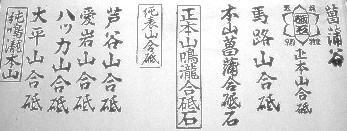 菖蒲谷
正本山合砥
馬路山合砥
本山菖蒲合砥石
正本山鳴瀧合砥石
純表山合砥
芦谷山合砥
愛岩山合砥
八ツ力山合砥
大平山合砥
純鳴瀧本山